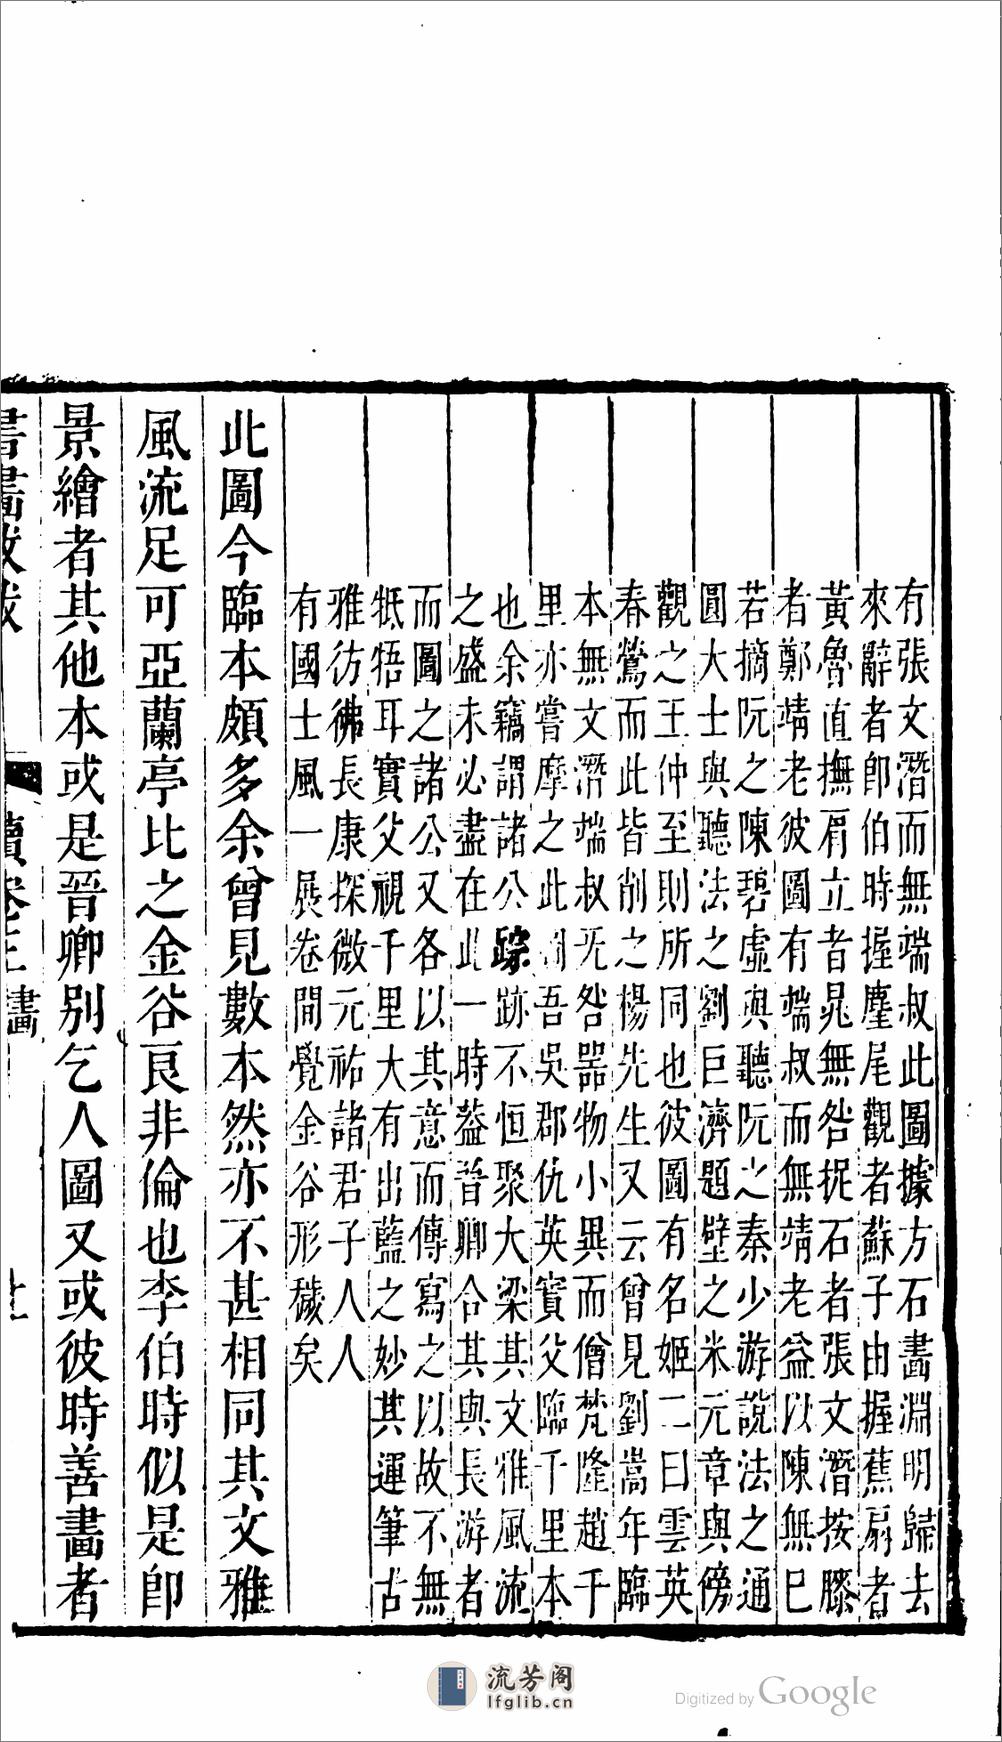 有張文潛而無端叔此圖據方石畵淵明歸去
來辭者卽伯時握麈尾觀者蘇子由握蕉扇者
黃魯直撫肩立者晁無咎捉石者張文潛按膝
者鄭靖老彼圖有端叔而無靖老益以陳無巳
若摘阮之陳碧虛與聽阮之秦少游說法之通
圓大士與聽法之劉巨濟題壁之米元章與傍
觀之王仲至則所同也彼圖有名姬二曰雲英
春鶯而此皆削之楊先生又云曾見劉嵩年臨
本無文潛端叔旡咎噐物小異而僧梵隆趙千
里亦嘗摩之此 吾吳郡仇英實父臨千里本
也余竊謂諸公踪跡不恒聚大梁其文雅風流
之盛未必盡在此一時葢晉卿合其與長游者
而圖之諸公又各以其意而傳寫之以故不無
牴牾耳實父視千里大有出藍之妙其運筆古
雅彷彿長康探微元祐諸君子人人
有國士風一展卷間覺金谷形穢矣
此圖今臨本頗多余曾見數本然亦不甚相同其文雅
風流足可亞蘭亭比之金谷良非倫也李伯時似是卽
景繪者其他本或是晉卿別乞人圖又或彼時善畵者
書畵跋跋
續卷三 畵
流芳阁
lfglib.cn
Digitized by Google